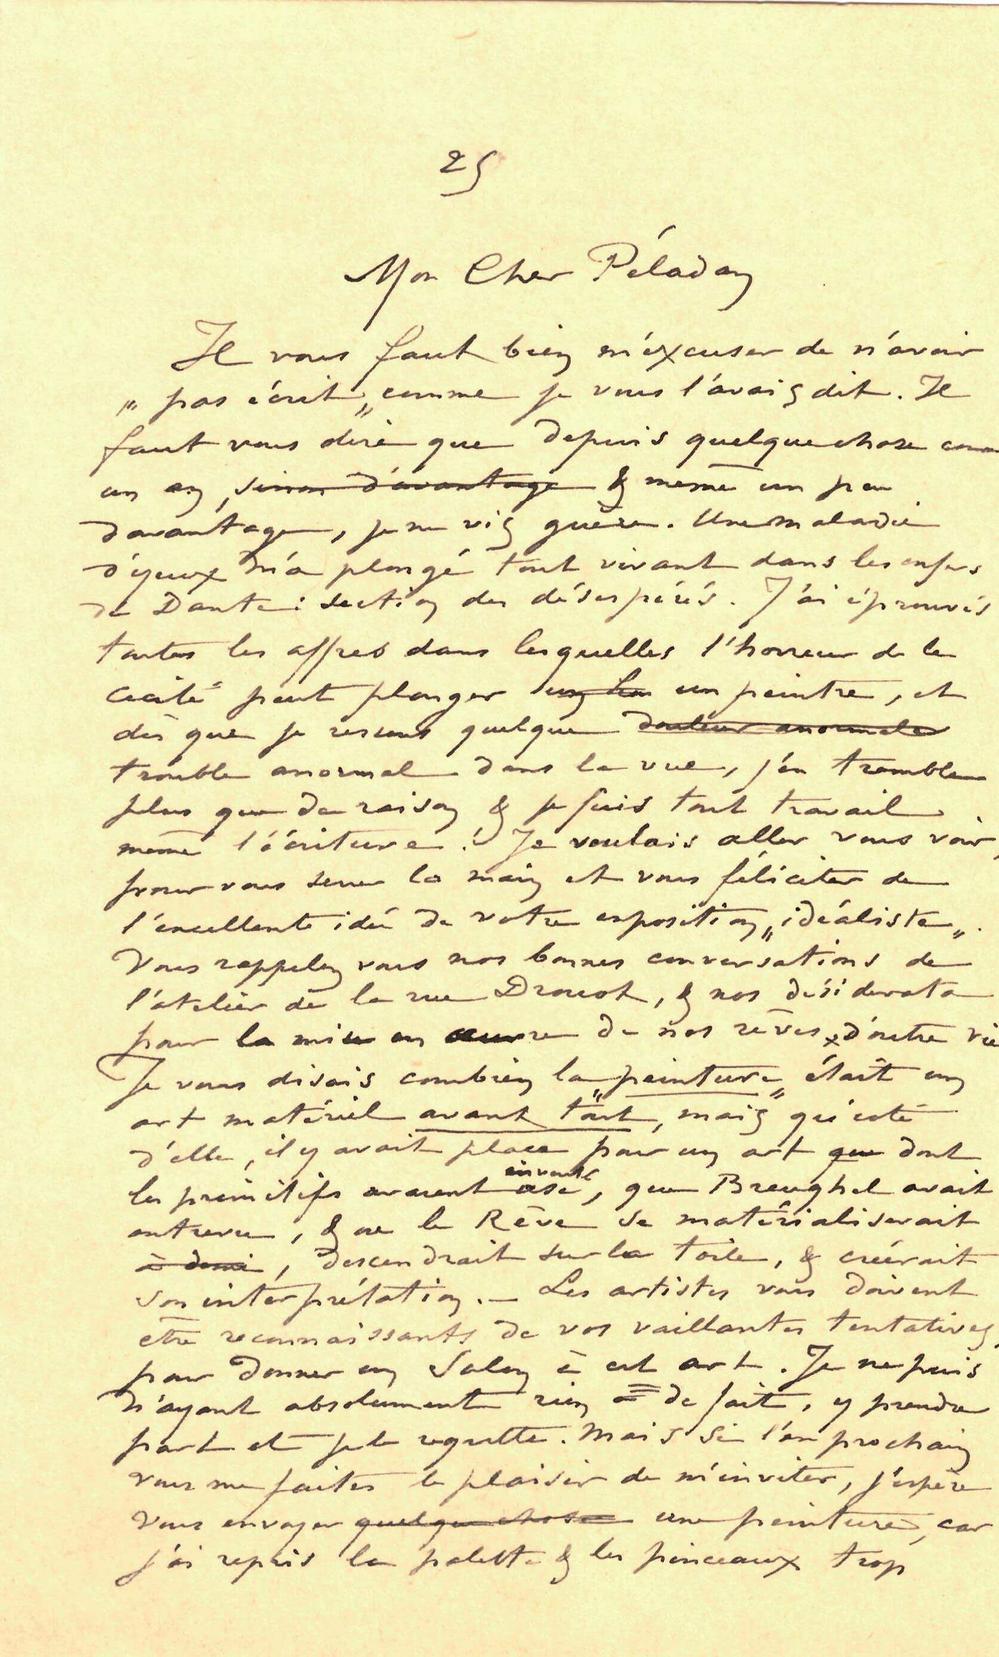 25
Mon Cher Péladan
Il vous faut bien m'éxcuser de n'avoir
„ pas écrit „ comme je vous l'avais dit. Il
faut vous dire que depuis quelque chose comme
un an, sinon d'avantage & même un peu
davantage, je ne vis guère. Une maladie
d'yeux m'a plongé tout vivant dans les enfers
de Dante : section des désespérés. J'ai éprouvés
toutes les affres dans lesquelles l'horreur de la
cécité peut plonger un un peintre, et
dès que je ressens quelque douleur anormale
trouble anormal dans la vue, j'en tremble
plus que de raison & je fuis tout travail
même l'écriture. Je voulais aller vous voir,
pour vous serrer la main et vous féliciter de
l'excellente idée de votre exposition „ idéaliste „.
Vous rappelez vous nos bonnes conversations de
l'atelier de la rue Drouot, & nos désiderata
pour la mise en œuvre de nos rêves d'outre vie
Je vous disais combien la „ peinture „ était un
art matériel avant tout, mais qu'à coté
d'elle, il y avait place pour un art que dont
les primitifs avaient osé, que Breughel avait
entrevu, & où le Rêve se matérialiserait
à demi, descendrait sur la toile, & créerait
son interprétation. — Les artistes vous doivent
être reconnaissants de vos vaillantes tentatives
pour donner un Salon à cet art. Je ne puis
n'ayant absolument rien de fait, y prendre
part et je le regrette. Mais si l'an prochain
vous me faites le plaisir de m'inviter, j'espère
vous envoyer quelque chose une peinture, car
j'ai repris la palette & les pinceaux trop